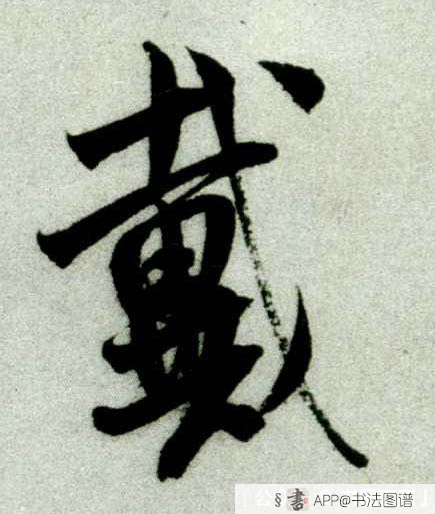 戴
書 APP@书法图谱